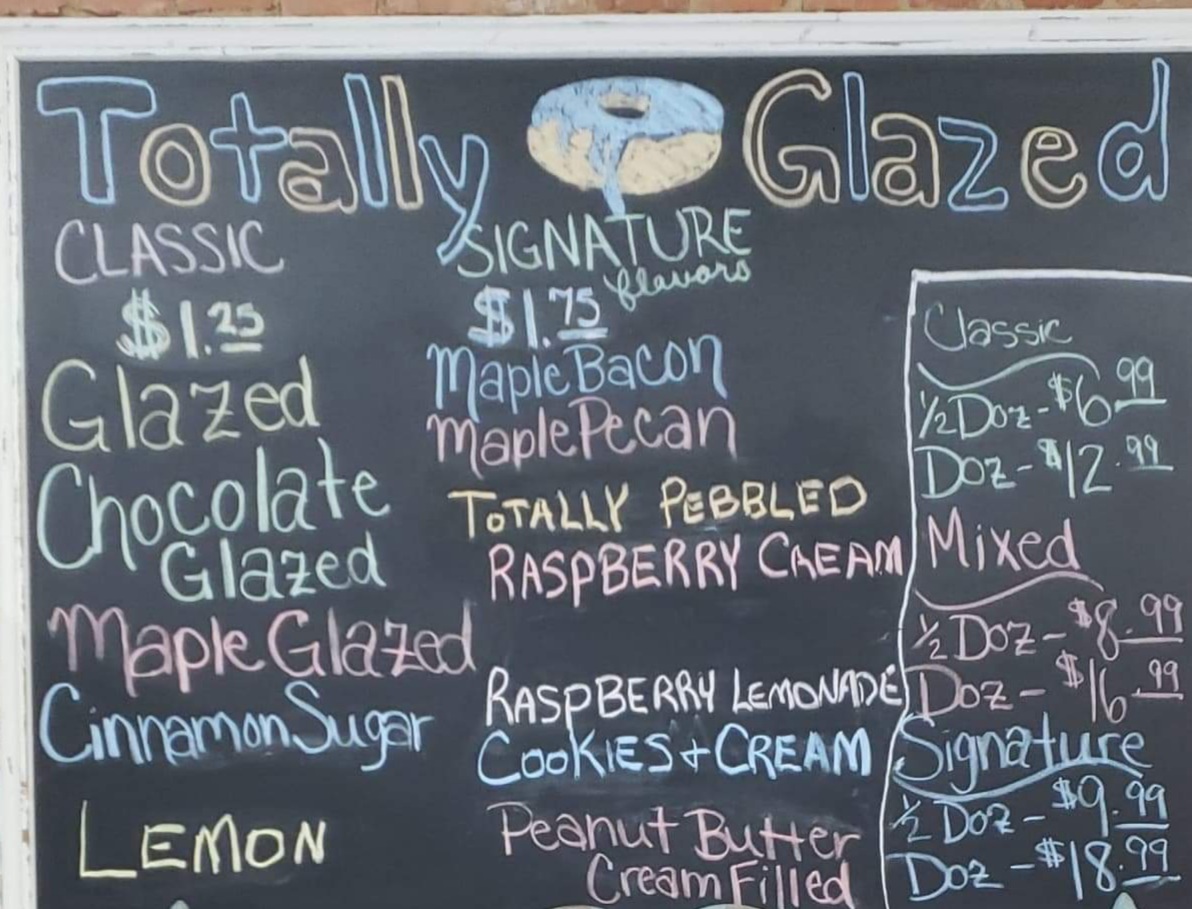 Totally Glazed
CLASSIC
$1.25
Glazed
Chocolate
Glazed
Maple Glazed
Cinnamon Sugar
LEMON
SIGNATURE
flavors
$1.75
Maple Bacon
Maple Pecan
TOTALLY PEBBLED
RASPBERRY CREAM
RASPBERRY LEMONADE
COOKIES + CREAM
Peanut Butter
Cream Filled
Classic
1/2 Doz - $6.99
Doz - $12.99
Mixed
1/2 Doz - $8.99
Doz - $16.99
Signature
1/2 Doz - $9.99
Doz - $18.99